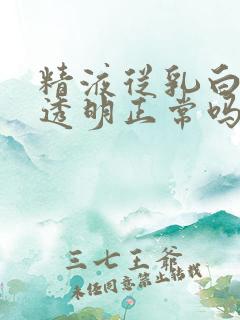 精液従乳白
透明正常吗
三七王爷
未经同意禁止转载